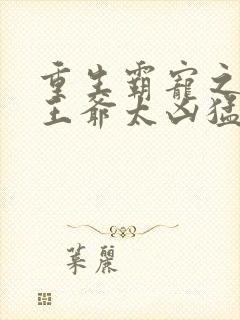 重生霸宠之
王爷太凶猛
叶丽